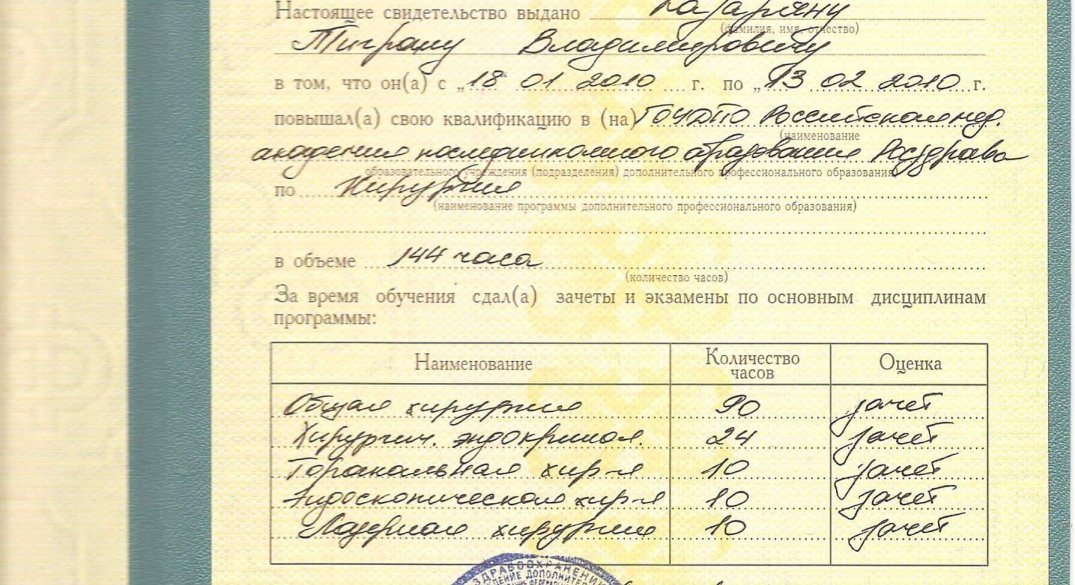 Настоящее свидетельство выдано
(фамилия, имя, отчество)
Тиграну Владимировичу
в том, что он(а) с „18 01 2010 г. по „13 02 2010 г.
повышал(а) свою квалификацию в (на) ГОУДПО Российская мед.
(наименование
академия последипломного образования Росздрава
образовательного учреждения (подразделения) дополнительного профессионального образования)
по Хирургии
(наименование программы дополнительного профессионального образования)
в объеме 144 часа
(количество часов)
За время обучения сдал(а) зачеты и экзамены по основным дисциплинам
программы:
Наименование Количество часов Оценка
Общая хирургия 90 зачет
Хирургич. эндокринол. 24 зачет
Торакальная хир-я 10 зачет
Эндоскопическая хир-я 10 зачет
Лазерная хирургия 10 зачет
ЗДРАВООХРАНЕНИ
ДЕНИЕ ДОПОЛНИТЕЛ